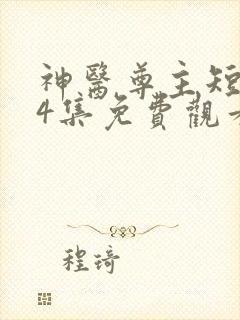 神醫尊主短
4集免費觀
程琦